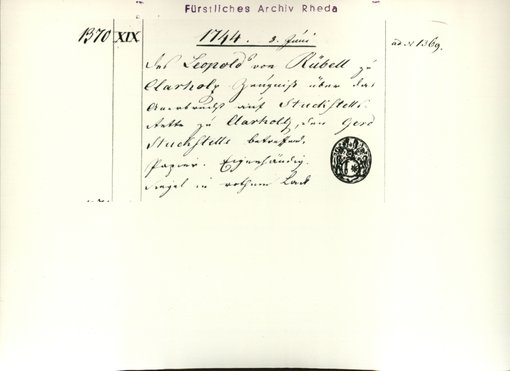 Fürstliches Archiv Rheda
1370 XIX 1744. 8. Juni ad N 1369.
Des Leopold von Rübell zu
Clarholz Zeugniß über das
auf Stuckstette
Stette zu Clarholtz, den Gerd
Stuckstette betreffend.
Papier. Eigenhändig.
Siegel in rothem Lack